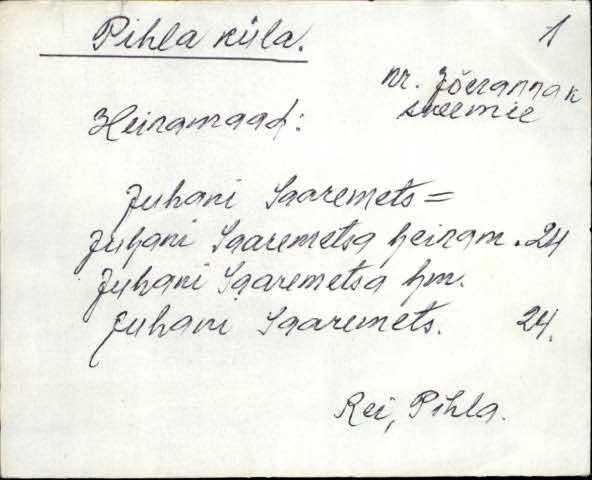 Pihla küla.
1
nr. Jõerannak
skeemile
Heinamaad:
Juhani Saaremets =
Juhani Saaremetsa heinam. 24
Juhani Saaremetsa hm.
Juhani Saaremets. 24.
Rei, Pihla.